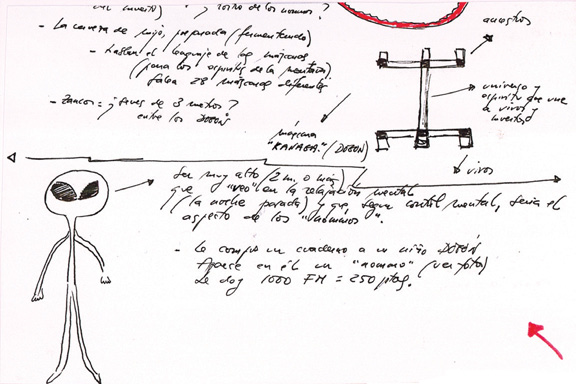 ¿y rostro de los nommos?
- La cerveza de mijo, preparada (fermentando)
- Hablan el lenguaje de las máscaras
(para los espíritus de la montaña)
28 máscaras diferentes
- Zancos = ¿seres de 3 metros?
entre los DOGÓN
ancestros
universo y
espíritu que une
a vivos y
muertos
máscara
"KANAGA" (DOGÓN)
vivos
Ser muy alto (2 m. o más)
que "veo" en la relajación mental
(la noche pasada) y que, según control mental, sería el
aspecto de los "nommos".
- Le compro un cuaderno a un niño DOGÓN
Aparece en él un "nommo" (ver foto)
Le doy 1000 FM = 250 ptas.